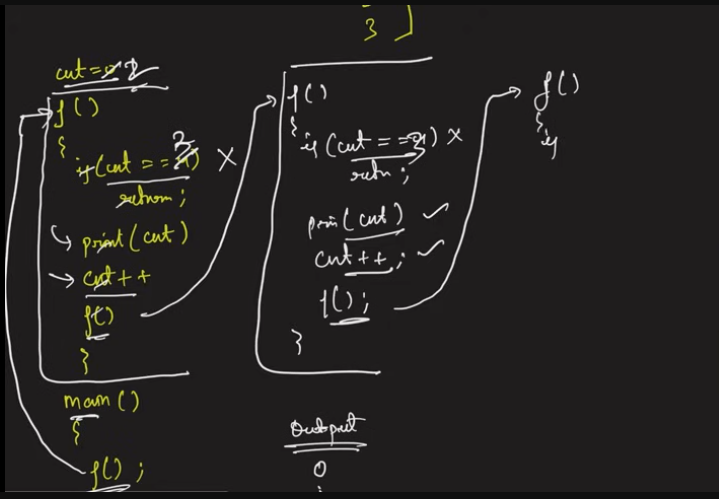 3 ]
cnt = 0 1 2
f()
{
if(cnt == 3)
return;
print(cnt)
cnt++
f()
}
main()
{
f();
f()
{
if(cnt == 3) x
retn;
prin(cnt) ✓
cnt++; ✓
f();
}
Output
0
f()
{
if